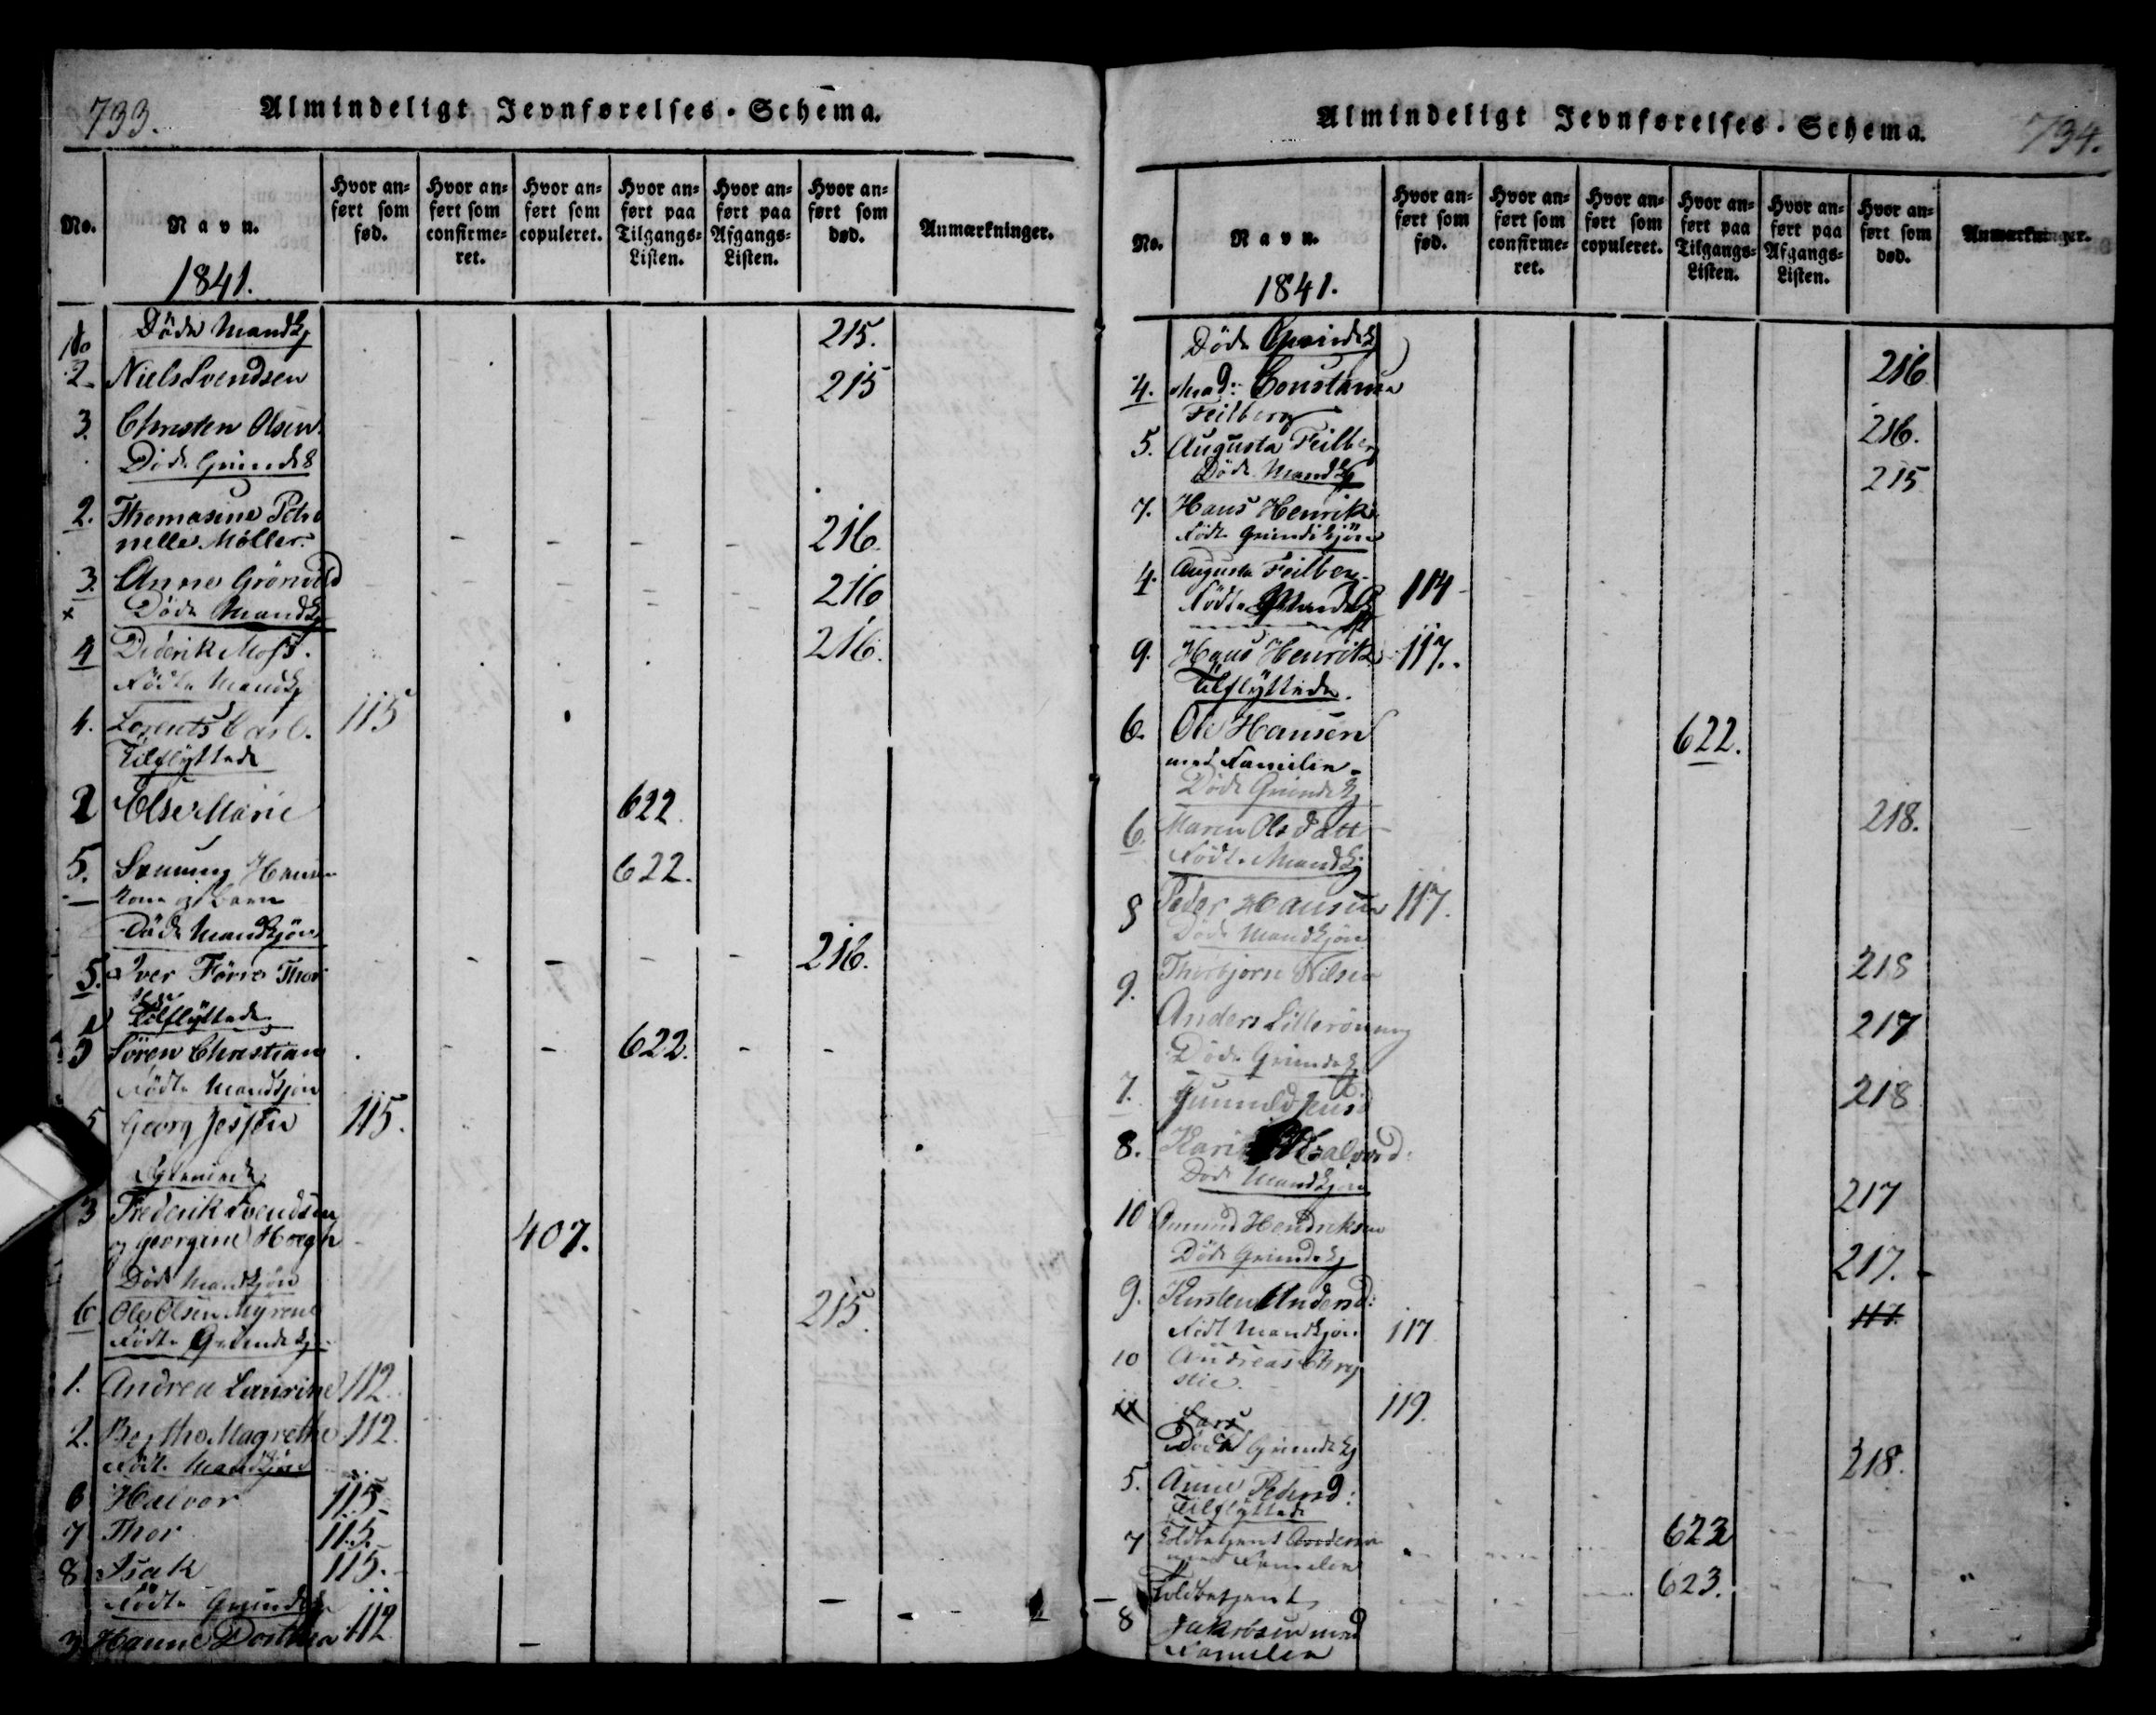 733.
Almindeligt Jevnførelses-Schema.
No. Navn. 1841. Hvor anført som fød. Hvor anført som confirmeret. Hvor anført som copuleret. Hvor anført paa Tilgangs-Listen. Hvor anført paa Afgangs-Listen. Hvor anført som død. Anmærkninger.
Döde Mandkj 215.
2 Niels Svendsen 215
3. Christen Olsen
Döde Qvindek
2. Thomasine Petro
nelle Møller. 216.
3. Anne Grönvold 216
x Döde Mandkj
4 Diderik Moss. 216.
Födte Mandkj
4. Lorents Carl. 115
Tilflyttede
2 Else Marie 622.
5. Hansen 622.
Kone og Barn
Döde Mandkjön
5. Iver Förre Thor 216.
Tilflyttede
3 Sören Christian 622.
Födte Mandkjön
5 Georg Jessen 115.
Egteviede
3 Frederik Svendsen
og Georgine Hoegh 407.
Döde Mandkjön
6 Ole Olsen Myrene 215.
Födte Qvindekj
1. Andrea Laurine 112.
2. Berthe Magrethe 112.
Födte Mandkjön
6 Halvor 115.
7 Thor 115.
8 Isak 115.
Födte Qvindek
3 Hanne Dorthea 112
794.
Almindeligt Jevnførelses-Schema.
No. Navn. 1841. Hvor anført som fød. Hvor anført som confirmeret. Hvor anført som copuleret. Hvor anført paa Tilgangs-Listen. Hvor anført paa Afgangs-Listen. Hvor anført som død. Anmærkninger.
Döde Qvindekj
4. Mad: Constance 216
Feilberg
5. Augusta Feilberg 216.
Döde Mandkj 215
7. Hans Henrik
Födte Qvindekjön
4. Augusta Feilberg 114
Födte Mandkj
9. Hans Henrik 117.
Tilflyttede.
6. Ole Hansen 622.
med Familie
Döde Qvindekj
6. Maren Olsdatt 218.
Födte Mandkj
8 Peder Hansen 117.
Döde Mandkjön
9. Thorbjörn Nilsen 218
Anders Lillerönning 217
Döde Qvindekj
7. Gunnild 218
8. Kari Halvord:
Döde Mandkjön
10 Amund Hendriksen 217
Döde Qvindekj
9. Kirsten Andersd: 217.
Födt Mandkjön 117 117.
10 Andreas Chry
stie.
11 Lars 119.
Döde Qvindekj
5. Anne Pedersd: 218.
Tilflyttede
7 Toldbetjent Andersen 623
med Familie
Toldbetjent 623.
8 Jakobsen med
Familie